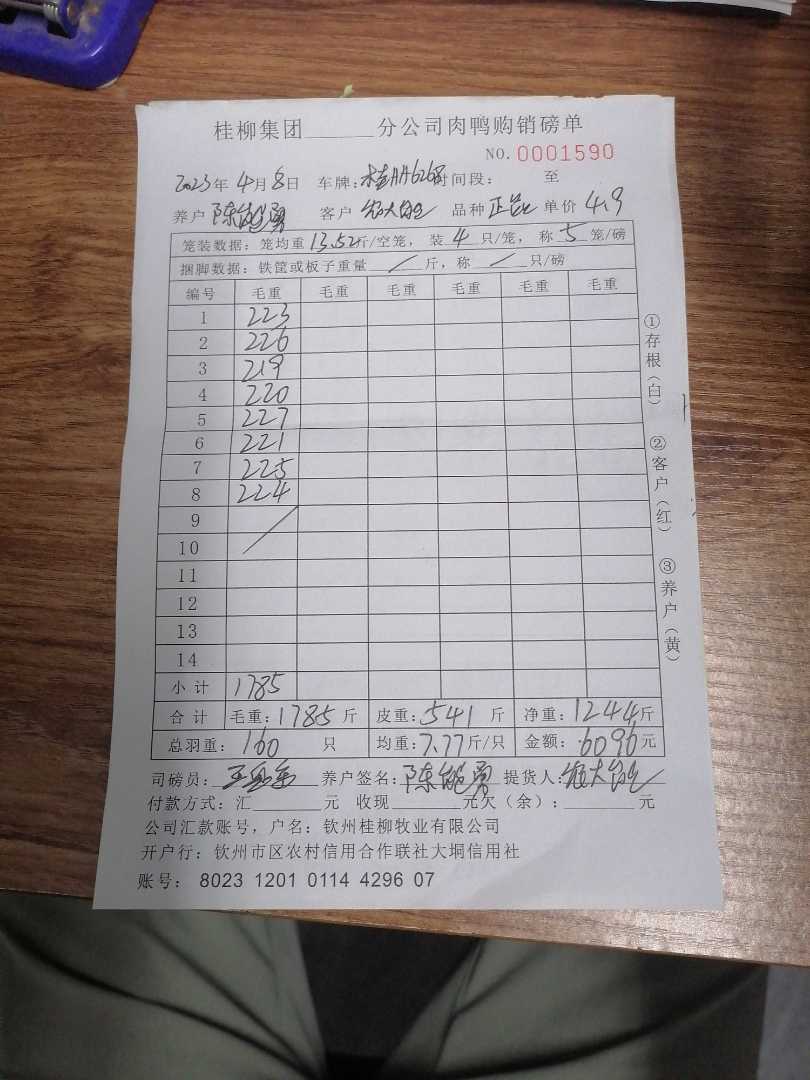 桂柳集团______分公司肉鸭购销磅单
NO. 0001590
2023年4月8日 车牌:桂 时间段: 至
养户 陈能勇 客户 品种 正 单价 4.9
笼装数据: 笼均重13.52斤/空笼, 装4只/笼, 称5笼/磅
捆脚数据: 铁筐或板子重量/斤, 称/只/磅
编号 毛重 毛重 毛重 毛重 毛重 毛重
1 223
2 226
3 219
4 220
5 227
6 221
7 225
8 224
9
10
11
12
13
14
小计 1785
合计 毛重:1785斤 皮重:541斤 净重:1244斤
总羽重:160只 均重:7.77斤/只 金额:6096元
司磅员: 养户签名:陈能勇 提货人:
付款方式: 汇______元 收现______元欠(余):______元
公司汇款账号, 户名: 钦州桂柳牧业有限公司
开户行: 钦州市区农村信用合作联社大垌信用社
账号: 8023 1201 0114 4296 07
①存根(白) ②客户(红) ③养户(黄)